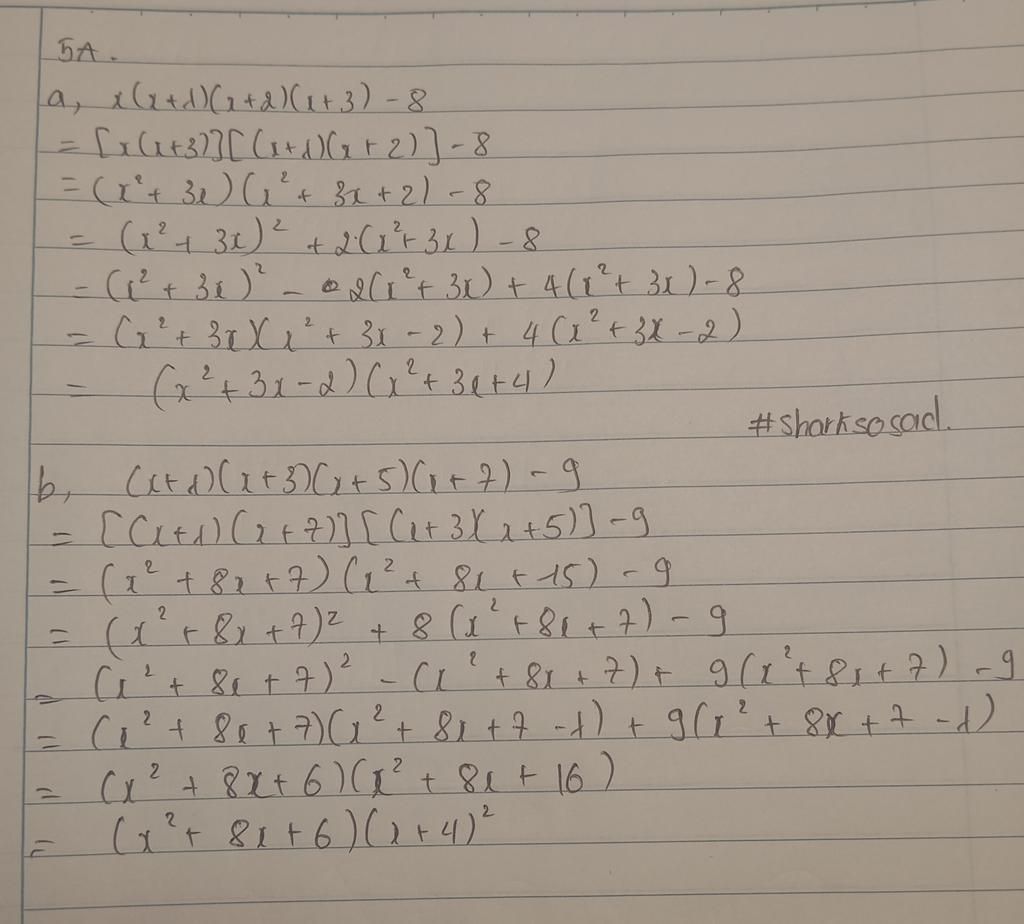 5A.
a, x(x+1)(x+2)(x+3) - 8
= [x(x+3)][(x+1)(x+2)] - 8
= (x² + 3x)(x² + 3x + 2) - 8
= (x² + 3x)² + 2·(x² + 3x) - 8
= (x² + 3x)² - 2(x² + 3x) + 4(x² + 3x) - 8
= (x² + 3x)(x² + 3x - 2) + 4(x² + 3x - 2)
= (x² + 3x - 2)(x² + 3x + 4)
#sharksosad.
b, (x+1)(x+3)(x+5)(x+7) - 9
= [(x+1)(x+7)][(x+3)(x+5)] - 9
= (x² + 8x + 7)(x² + 8x + 15) - 9
= (x² + 8x + 7)² + 8(x² + 8x + 7) - 9
= (x² + 8x + 7)² - (x² + 8x + 7) + 9(x² + 8x + 7) - 9
= (x² + 8x + 7)(x² + 8x + 7 - 1) + 9(x² + 8x + 7 - 1)
= (x² + 8x + 6)(x² + 8x + 16)
= (x² + 8x + 6)(x + 4)²